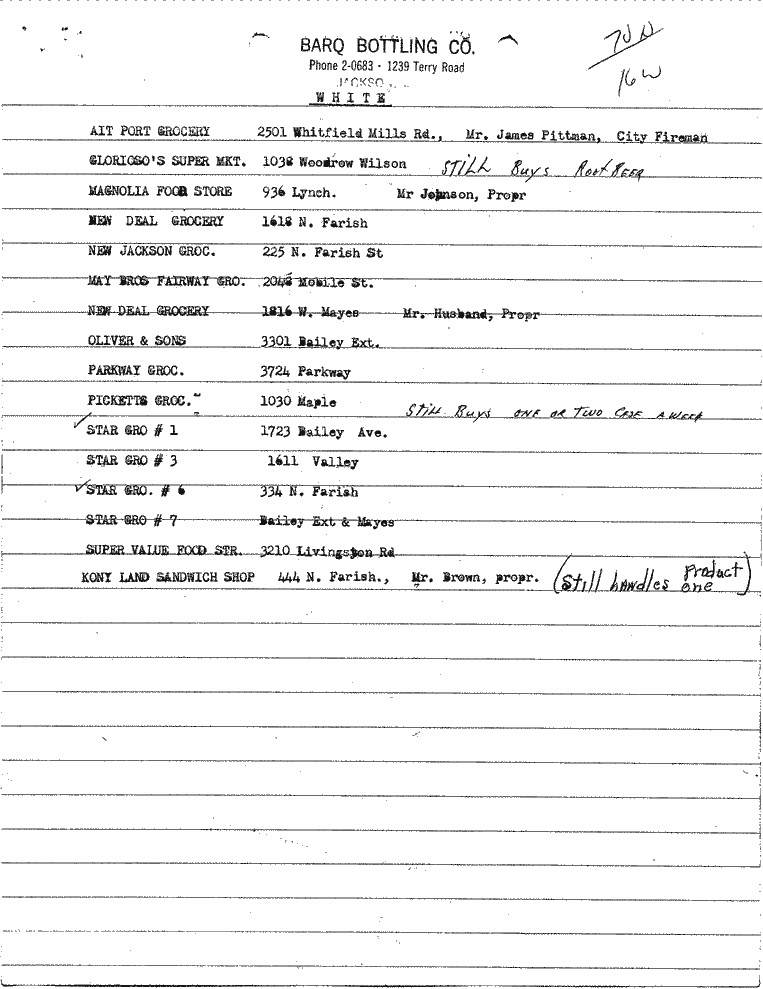 BARQ BOTTLING CO.
Phone 2-0683 - 1239 Terry Road
JACKSO
WHITE
70 N
16 W
AIT PORT GROCERY 2501 Whitfield Mills Rd., Mr. James Pittman, City Fireman
GLORIOSO'S SUPER MKT. 1038 Woodrow Wilson STILL Buys Root BEER
MAGNOLIA FOOD STORE 936 Lynch. Mr Johnson, Propr
NEW DEAL GROCERY 1618 N. Farish
NEW JACKSON GROC. 225 N. Farish St
MAY BROS FAIRWAY GRO. 2048 Mobile St.
NEW DEAL GROCERY 1816 W. Mayes Mr. Husband, Propr
OLIVER & SONS 3301 Bailey Ext.
PARKWAY GROC. 3724 Parkway
PICKETTS GROC. 1030 Maple STILL Buys ONE OR TWO CASE A WEEK
STAR GRO # 1 1723 Bailey Ave.
STAR GRO # 3 1611 Valley
STAR GRO. # 6 334 N. Farish
STAR GRO # 7 Bailey Ext & Mayes
SUPER VALUE FOOD STR. 3210 Livingston Rd
KONY LAND SANDWICH SHOP 444 N. Farish., Mr. Brown, propr. (Still handles Product one)